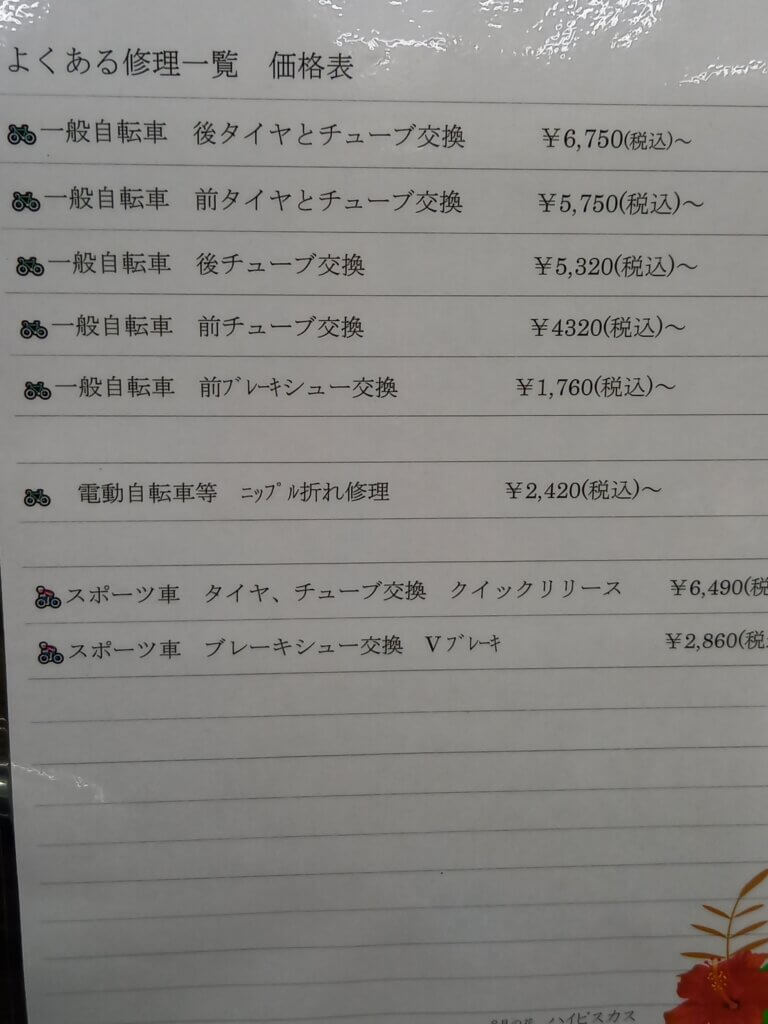 よくある修理一覧　価格表
一般自転車　後タイヤとチューブ交換　￥6,750(税込)～
一般自転車　前タイヤとチューブ交換　￥5,750(税込)～
一般自転車　後チューブ交換　￥5,320(税込)～
一般自転車　前チューブ交換　￥4320(税込)～
一般自転車　前ﾌﾞﾚｰｷシュー交換　￥1,760(税込)～
電動自転車等　ﾆｯﾌﾟﾙ折れ修理　￥2,420(税込)～
スポーツ車　タイヤ、チューブ交換　クイックリリース　￥6,490(税
スポーツ車　ブレーキシュー交換　Vﾌﾞﾚｰｷ　￥2,860(税
ハイビスカス